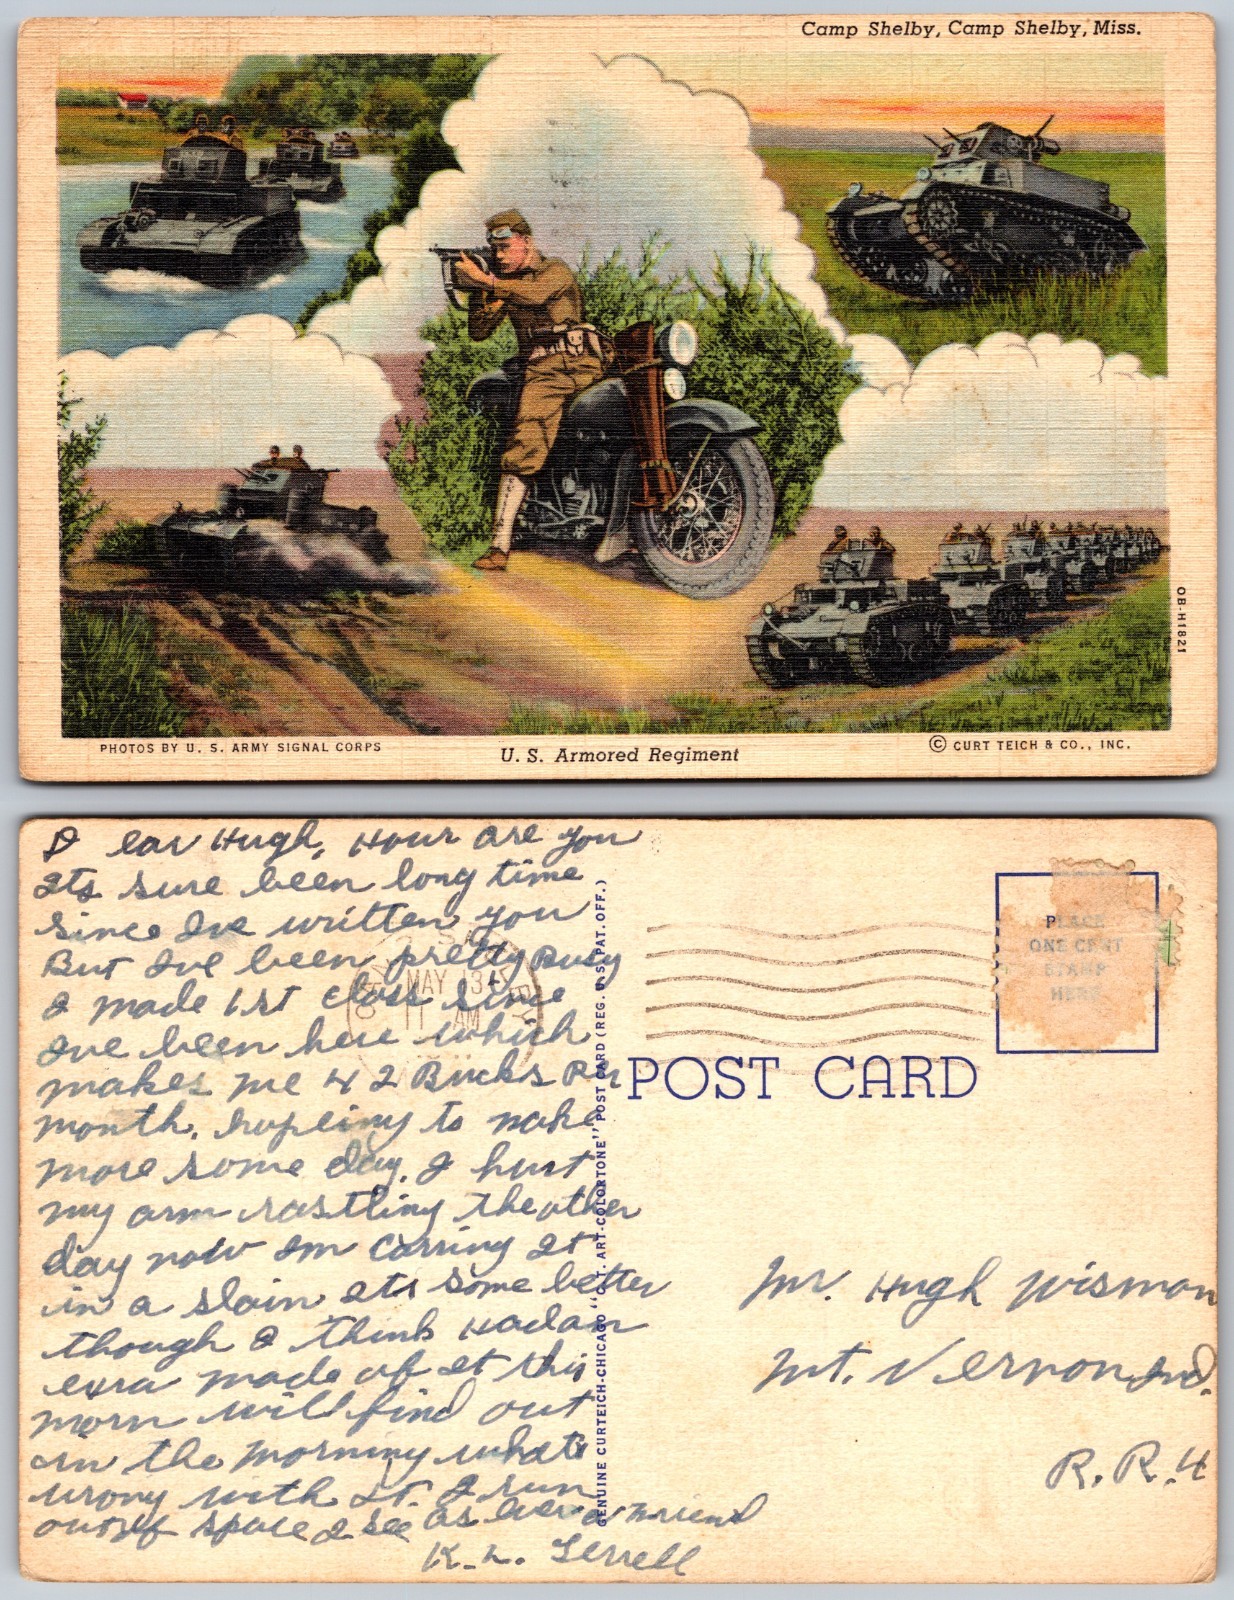 Camp Shelby, Camp Shelby, Miss.
OB-H1821
PHOTOS BY U. S. ARMY SIGNAL CORPS
U. S. Armored Regiment
© CURT TEICH & CO., INC.
Dear Hugh, Hour are you
Its sure been long time
since Ive written you
But Ive been pretty Busy
I made 1st class since
Ive been here which
makes me 42 Bucks Per
month. hopeing to make
more some day. I hurt
my arm rastling the other
day now Im carring It
in a slain Its some better
though I think Hadan
exra made of It this
morn will find out
in the morning whats
wrong with It. I run
out of space I see as ever a Friend
K. L. Terrell
MAY 13
11 AM
GENUINE CURTEICH-CHICAGO "C. T. ART-COLORTONE" POST CARD (REG. U.S. PAT. OFF.)
PLACE
ONE CENT
STAMP
HERE
POST CARD
Mr. Hugh Wisman
Mt. Vernon, Ind.
R. R. 4